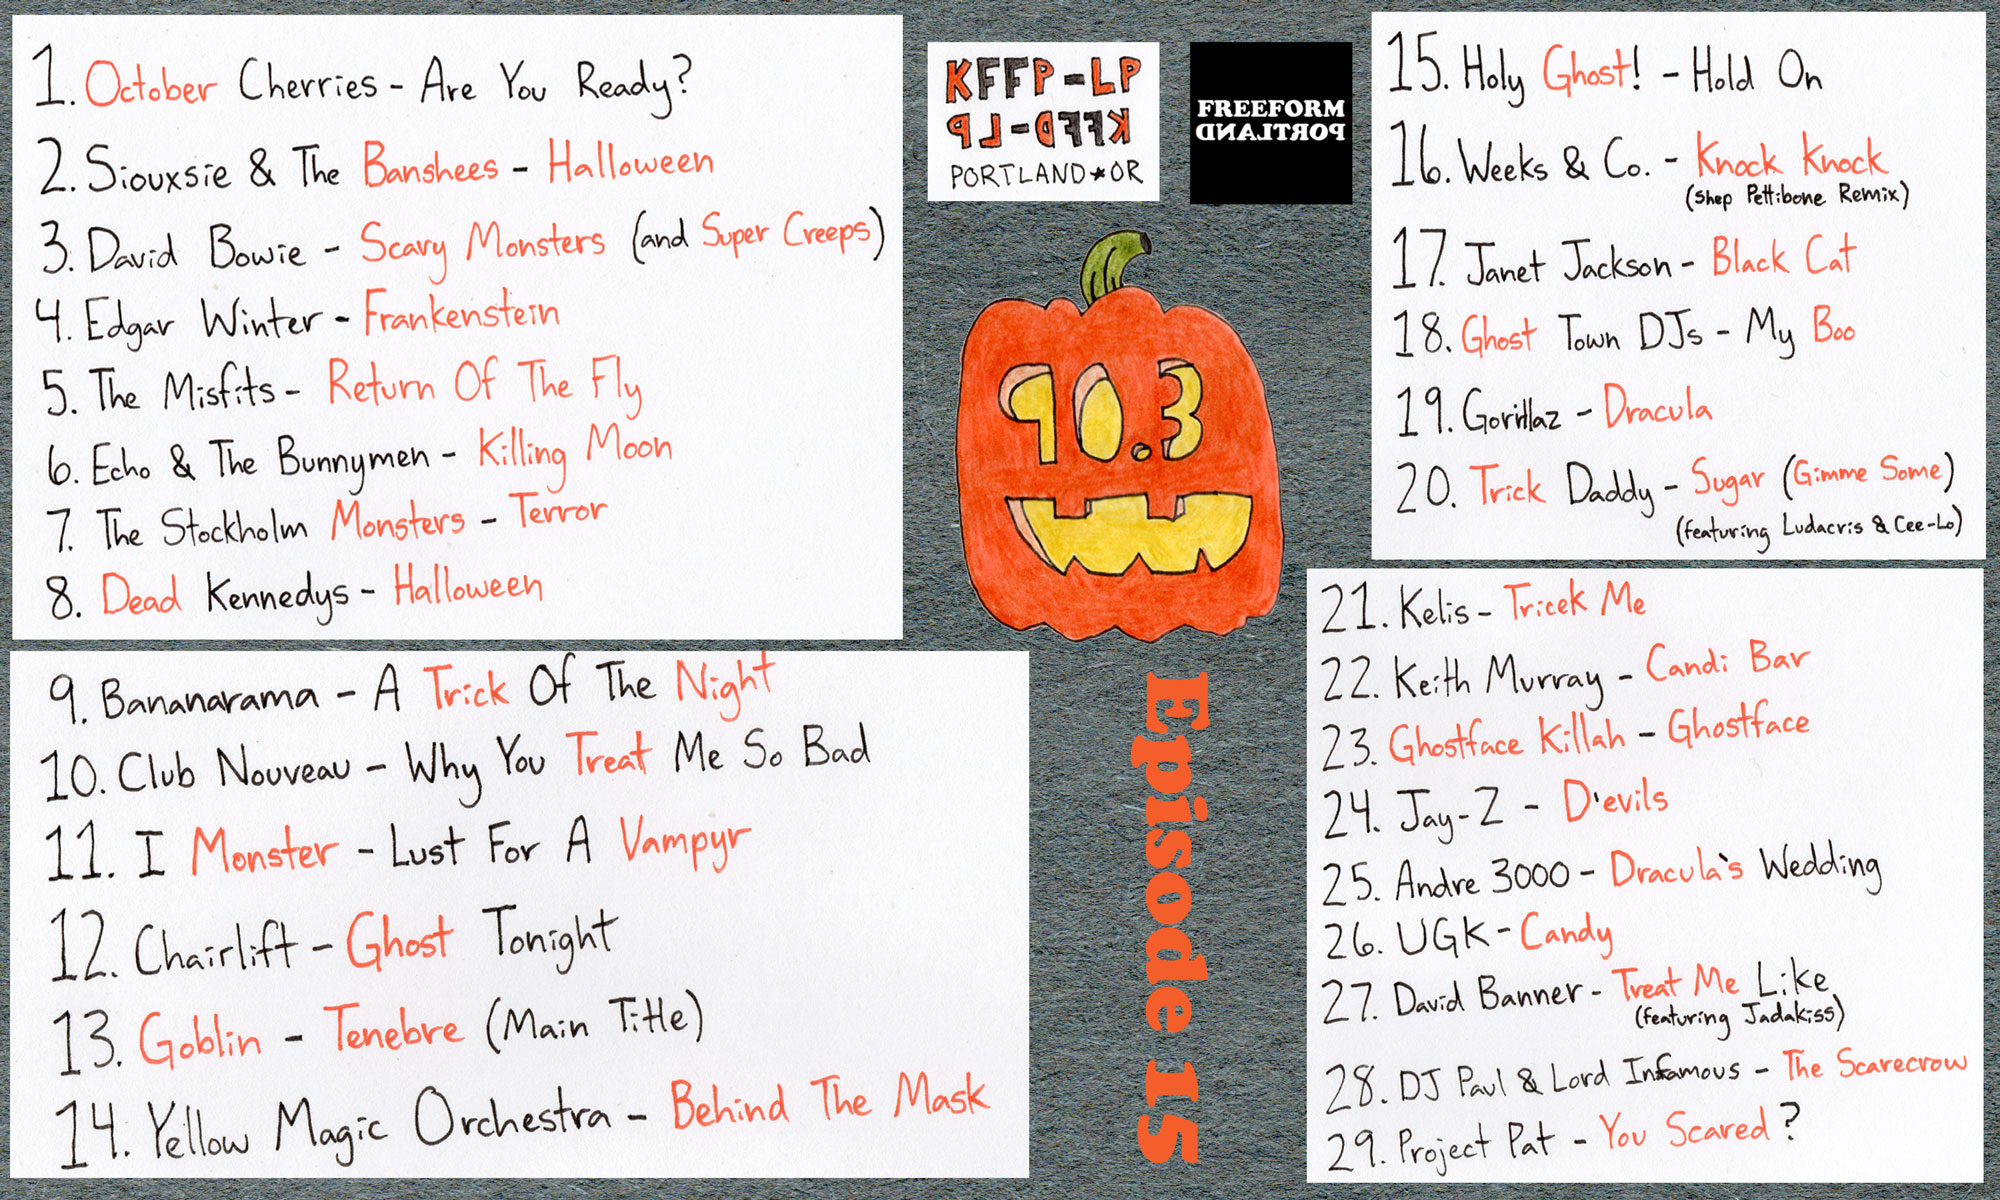 1. October Cherries - Are You Ready?
2. Siouxsie & The Banshees - Halloween
3. David Bowie - Scary Monsters (and Super Creeps)
4. Edgar Winter - Frankenstein
5. The Misfits - Return Of The Fly
6. Echo & The Bunnymen - Killing Moon
7. The Stockholm Monsters - Terror
8. Dead Kennedys - Halloween
9. Bananarama - A Trick Of The Night
10. Club Nouveau - Why You Treat Me So Bad
11. I Monster - Lust For A Vampyr
12. Chairlift - Ghost Tonight
13. Goblin - Tenebre (Main Title)
14. Yellow Magic Orchestra - Behind The Mask
KFFP-LP
KFFP-LP
PORTLAND★OR
FREEFORM
PORTLAND
90.3
Episode 15
15. Holy Ghost! - Hold On
16. Weeks & Co. - Knock Knock
(Shep Pettibone Remix)
17. Janet Jackson - Black Cat
18. Ghost Town DJs - My Boo
19. Gorillaz - Dracula
20. Trick Daddy - Sugar (Gimme Some)
(featuring Ludacris & Cee-Lo)
21. Kelis - Tricek Me
22. Keith Murray - Candi Bar
23. Ghostface Killah - Ghostface
24. Jay-Z - D'evils
25. Andre 3000 - Dracula's Wedding
26. UGK - Candy
27. David Banner - Treat Me Like
(featuring Jadakiss)
28. DJ Paul & Lord Infamous - The Scarecrow
29. Project Pat - You Scared?